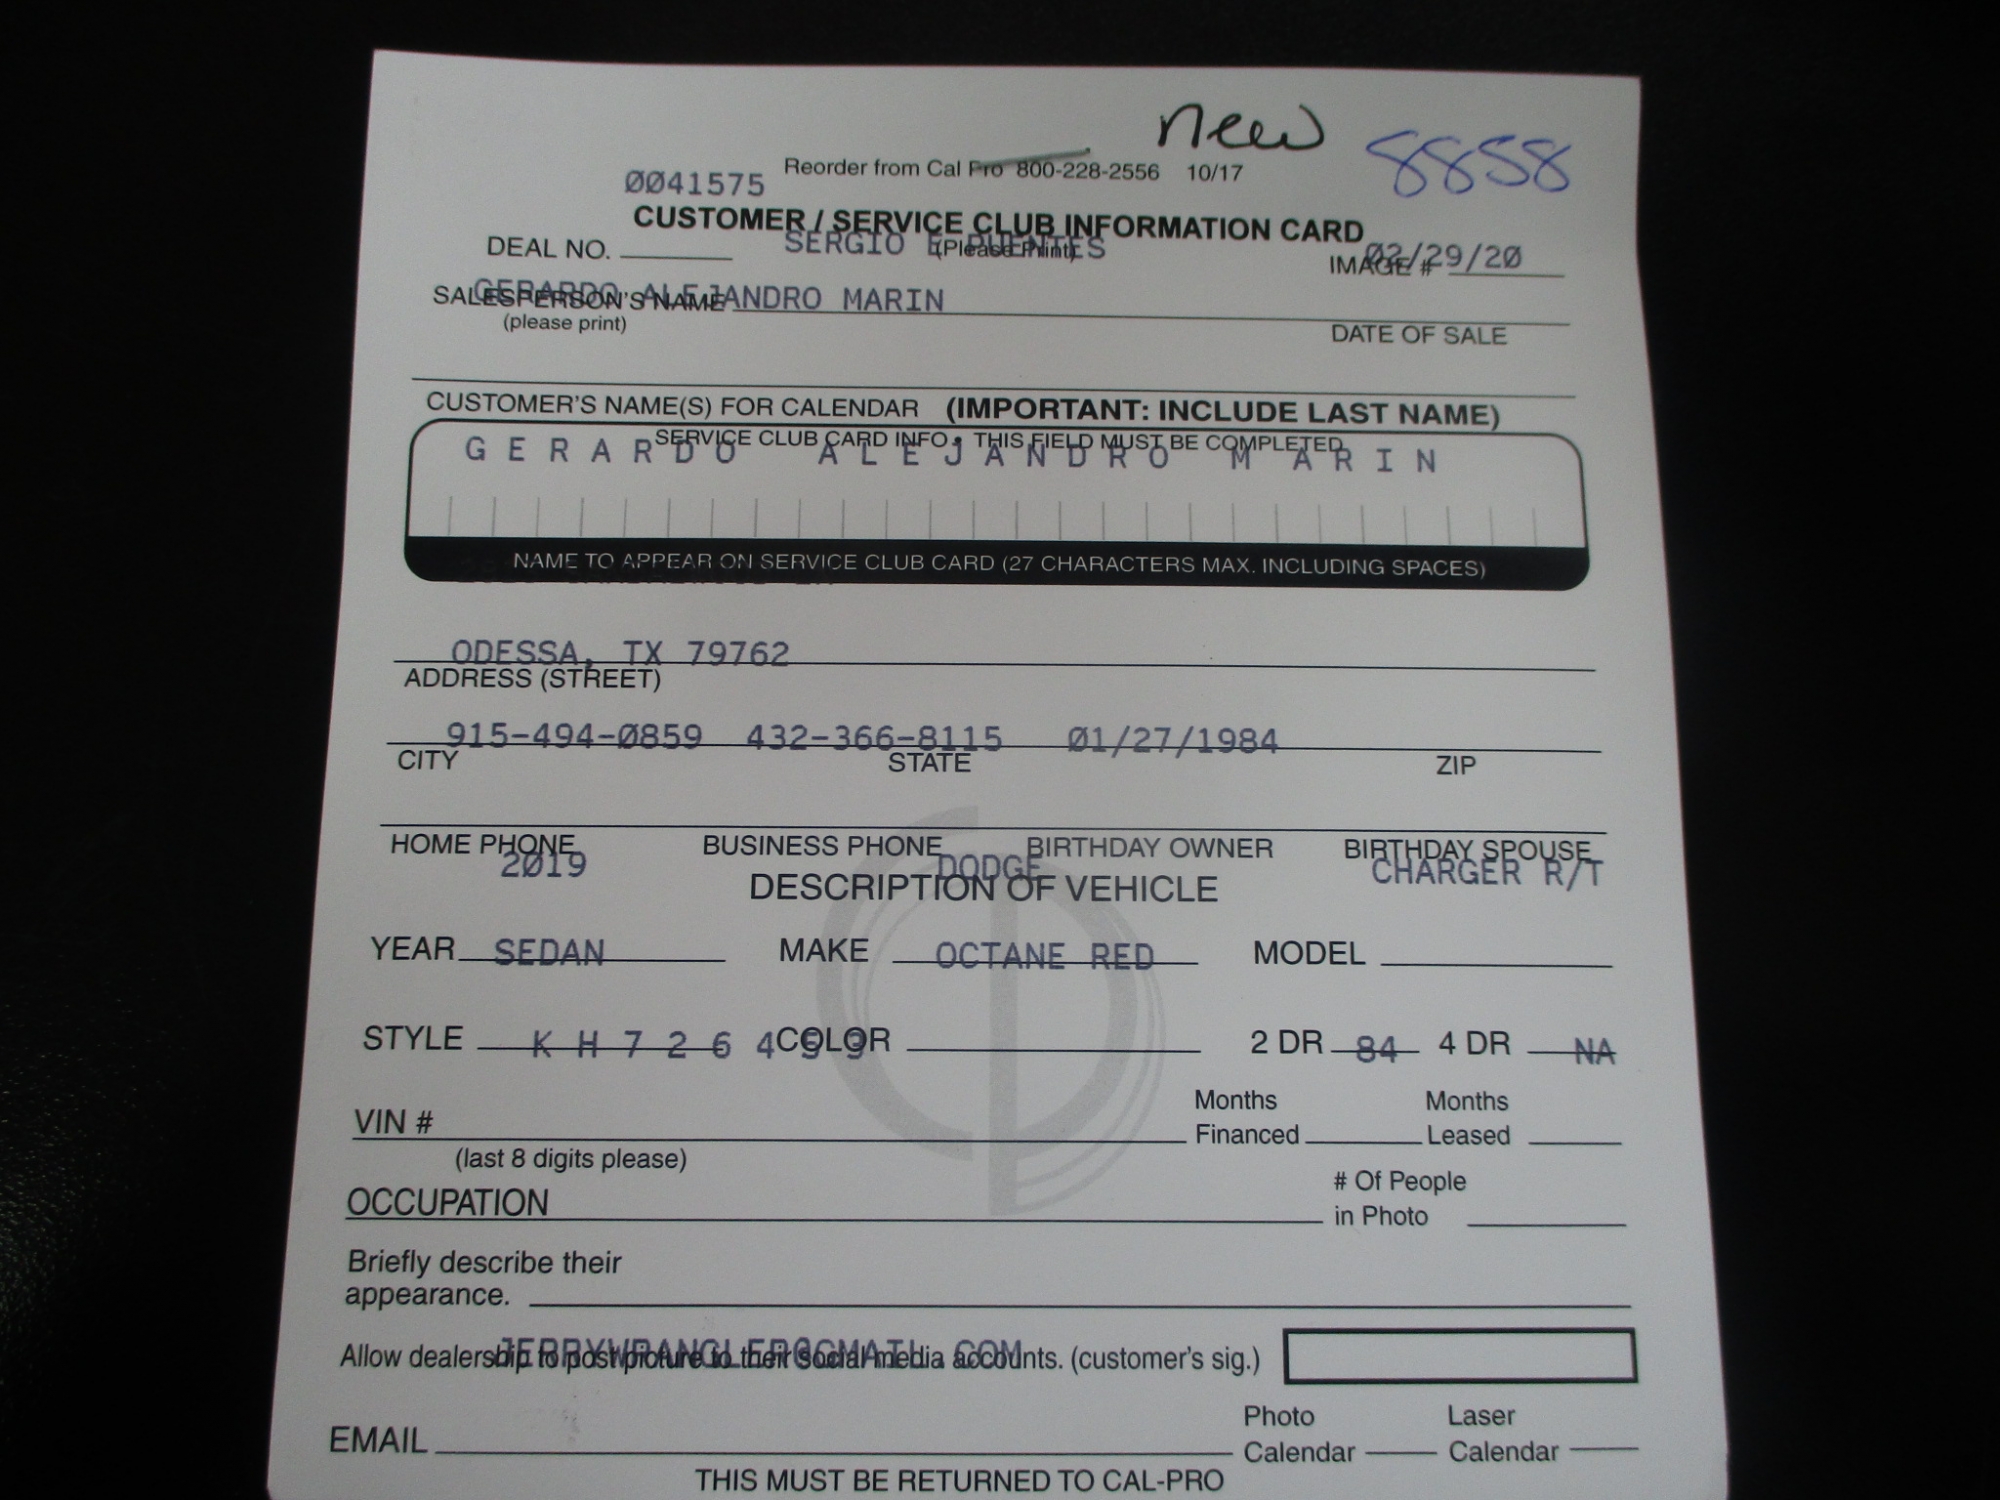 new
8858
Reorder from Cal Pro 800-228-2556 10/17
0041575
CUSTOMER / SERVICE CLUB INFORMATION CARD
DEAL NO. SERGIO E PUENTES (Please Print) IMAGE # 02/29/20
SALESPERSON'S NAME GERARDO ALEJANDRO MARIN
(please print) DATE OF SALE
CUSTOMER'S NAME(S) FOR CALENDAR (IMPORTANT: INCLUDE LAST NAME)
SERVICE CLUB CARD INFO • THIS FIELD MUST BE COMPLETED
GERARDO ALEJANDRO MARIN
NAME TO APPEAR ON SERVICE CLUB CARD (27 CHARACTERS MAX. INCLUDING SPACES)
ODESSA, TX 79762
ADDRESS (STREET)
915-494-0859 432-366-8115 01/27/1984
CITY STATE ZIP
HOME PHONE BUSINESS PHONE BIRTHDAY OWNER BIRTHDAY SPOUSE
2019 DODGE CHARGER R/T
DESCRIPTION OF VEHICLE
YEAR SEDAN MAKE OCTANE RED MODEL
STYLE KH726459 COLOR 2 DR 84 4 DR NA
VIN # Months Financed Months Leased
(last 8 digits please)
OCCUPATION # Of People in Photo
Briefly describe their
appearance.
JERRYWRANGLER@GMAIL.COM
Allow dealership to post picture to their social media accounts. (customer's sig.)
EMAIL Photo Calendar Laser Calendar
THIS MUST BE RETURNED TO CAL-PRO